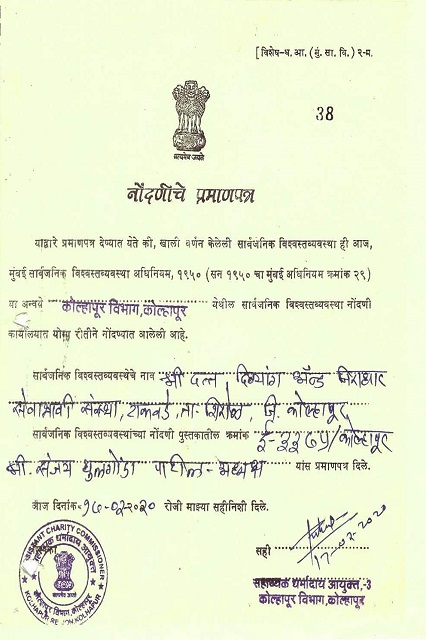 [विशेष-ध. आ. (मुं. सा. वि.) २-म.
38
सत्यमेव जयते
नोंदणीचे प्रमाणपत्र
याद्वारे प्रमाणपत्र देण्यात येते की, खाली वर्णन केलेली सार्वजनिक विश्वस्तव्यवस्था ही आज,
मुंबई सार्वजनिक विश्वस्तव्यवस्था अधिनियम, १९५० (सन १९५० चा मुंबई अधिनियम क्रमांक २९)
या अन्वये कोल्हापूर विभाग,कोल्हापूर येथील सार्वजनिक विश्वस्तव्यवस्था नोंदणी
कार्यालयात योग्य रीतीने नोंदण्यात आलेली आहे.
सार्वजनिक विश्वस्तव्यवस्थेचे नाव श्री दत्त दिव्यांग अँन्ड निराधार
सेवाभावी संस्था, टाकवडे, ता-शिरोळ, जि. कोल्हापूर
सार्वजनिक विश्वस्तव्यवस्थांच्या नोंदणी पुस्तकातील क्रमांक ई-३३७५/कोल्हापूर
श्री. संजय धुळगोंडा पाटील - अध्यक्ष यांस प्रमाणपत्र दिले.
आज दिनांक १७-०२-२०२० रोजी माझ्या सहीनिशी दिले.
सही
17-02-2020
सहाय्यक धर्मादाय आयुक्त,-3
कोल्हापूर विभाग,कोल्हापूर
ASSISTANT CHARITY COMMISSIONER
KOLHAPUR REGION, KOLHAPUR
सहाय्यक धर्मादाय आयुक्त
कोल्हापूर विभाग,कोल्हापूर